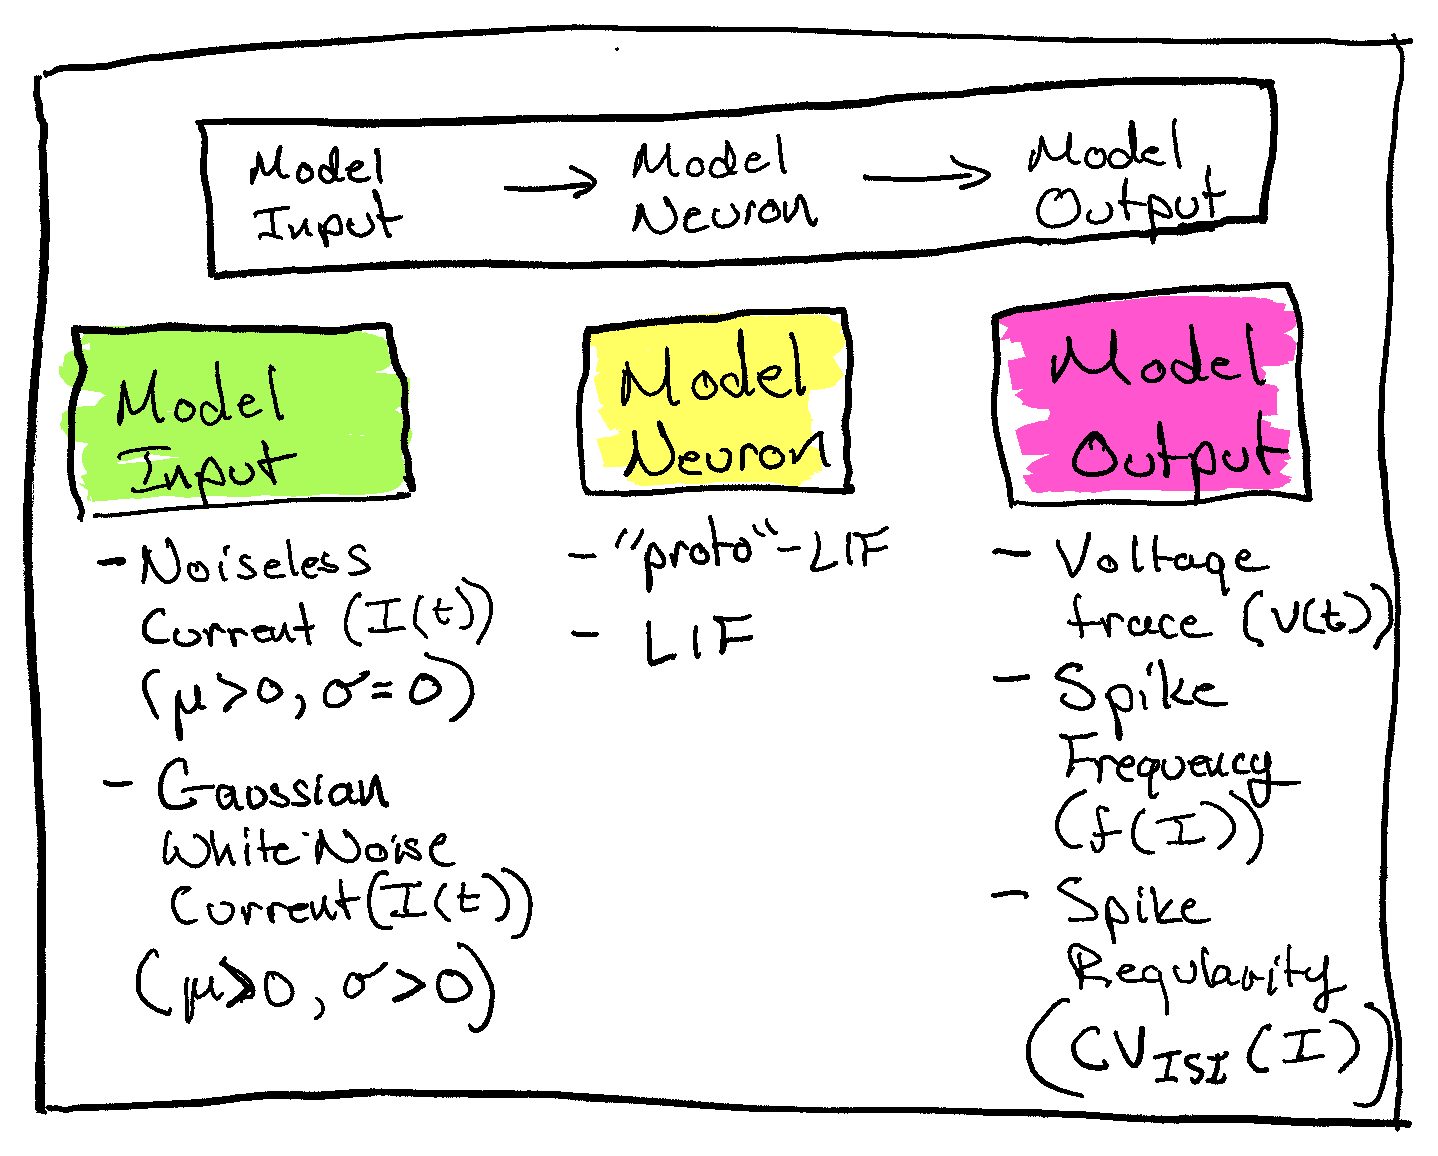 Model
Input
→ Model
Neuron
→ Model
Output
Model
Input
- Noiseless
Current (I(t))
(μ>0, σ=0)
- Gaussian
White Noise
Current (I(t))
(μ>0, σ>0)
Model
Neuron
- "proto"-LIF
- LIF
Model
Output
- Voltage
trace (V(t))
- Spike
Frequency
(f(I))
- Spike
Regularity
(CV_ISI(I))